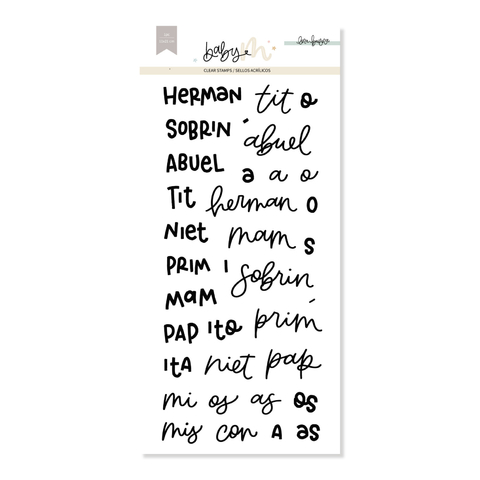 baby m
CLEAR STAMPS / SELLOS ACRÍLICOS
HERMAN tit o
SOBRIN ´ abuel
ABUEL a a o
Tit herman o
Niet mam s
PRIM I sobrin
mam ´
PAP ito prim
ita niet pap
mi os as os
mis con A as